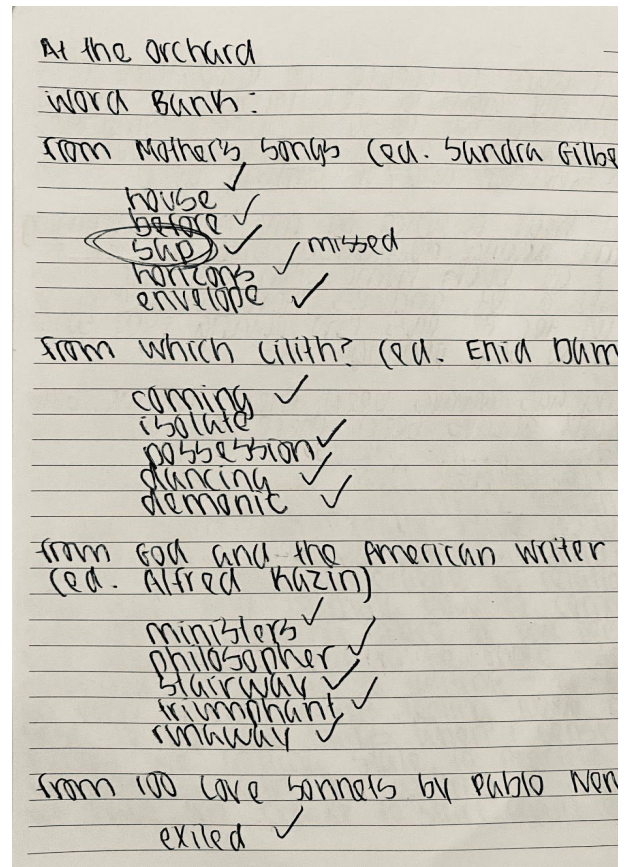 At the orchard
Word Bank:
from Mother's Songs (ed. Sandra Gilbe
house ✓
before ✓
sup ✓
horizons ✓ missed
envelope ✓
from which Lilith? (ed. Enid Dam
coming ✓
isolate
possession ✓
dancing ✓
demonic ✓
from God and the American Writer
(ed. Alfred Kazin)
ministers ✓
philosopher ✓
stairway ✓
triumphant ✓
runaway ✓
from 100 Love Sonnets by Pablo Ner
exiled ✓